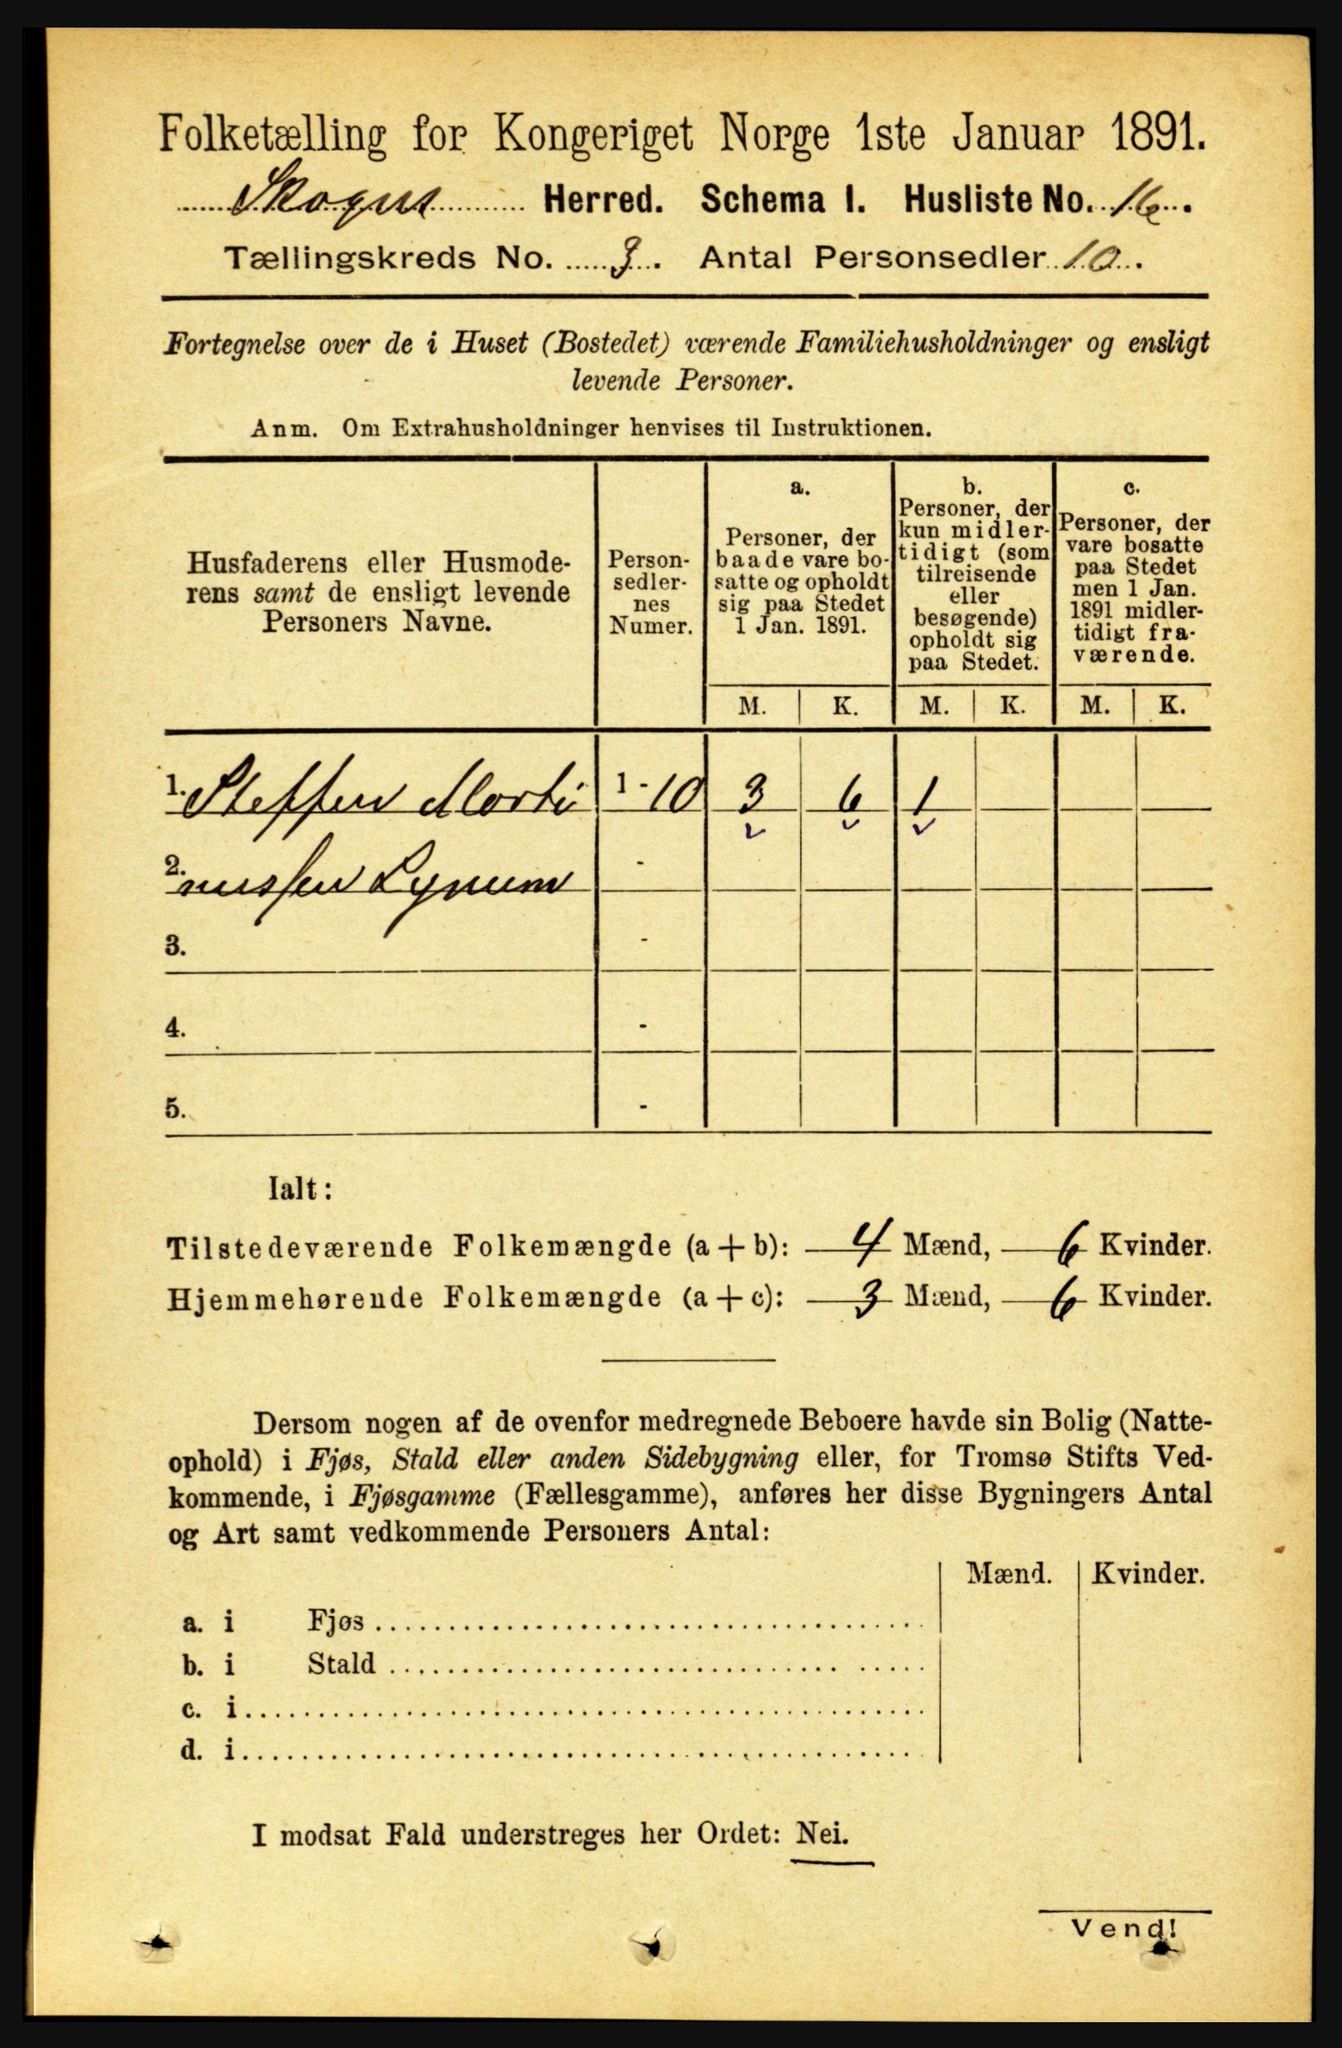 Folketælling for Kongeriget Norge 1ste Januar 1891.
Skogns Herred. Schema I. Husliste No. 16.
Tællingskreds No. 3. Antal Personsedler 10.
Fortegnelse over de i Huset (Bostedet) værende Familiehusholdninger og ensligt
levende Personer.
Anm. Om Extrahusholdninger henvises til Instruktionen.
Husfaderens eller Husmode-
rens samt de ensligt levende
Personers Navne.
Person-
sedler-
nes
Numer.
a.
Personer, der
baade vare bo-
satte og opholdt
sig paa Stedet
1 Jan. 1891.
b.
Personer, der
kun midler-
tidigt (som
tilreisende
eller
besøgende)
opholdt sig
paa Stedet.
c.
Personer, der
vare bosatte
paa Stedet
men 1 Jan.
1891 midler-
tidigt fra-
værende.
M. K. M. K. M. K.
1. Steffen Marti 1 - 10 3 6 1
2. nussen Lynum -
3. -
4. -
5. -
Ialt:
Tilstedeværende Folkemængde (a + b): 4 Mænd, 6 Kvinder.
Hjemmehørende Folkemængde (a + c): 3 Mænd, 6 Kvinder.
Dersom nogen af de ovenfor medregnede Beboere havde sin Bolig (Natte-
ophold) i Fjøs, Stald eller anden Sidebygning eller, for Tromsø Stifts Ved-
kommende, i Fjøsgamme (Fællesgamme), anføres her disse Bygningers Antal
og Art samt vedkommende Personers Antal:
Mænd. Kvinder.
a. i Fjøs
b. i Stald
c. i
d. i
I modsat Fald understreges her Ordet: Nei.
Vend!